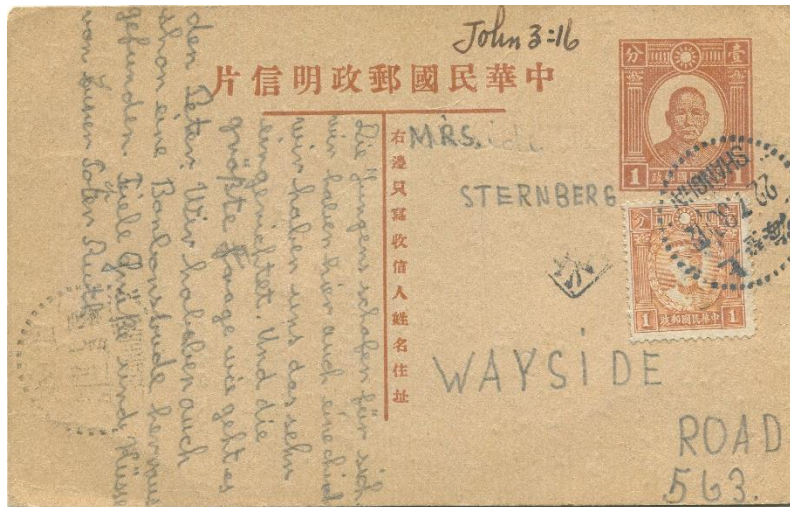 John 3:16
中華民國郵政明信片
壹分
1 1
中華民國郵政
右邊只寫收信人姓名住址
MRS.
STERNBERG
WAYSIDE
ROAD
563.
1 1
中華民國郵政
SHANGHAI
22 7
上海
Die Jungens schafen für sich.
wir haben hier auch eine
wir haben uns das sehr
eingerichtet. Und die
größte Frage wie geht es
den Peter. Wir habeben auch
shon eine Bonbonsbude heraus
gefunden. Viele Grüße und Küsse
von Ruth